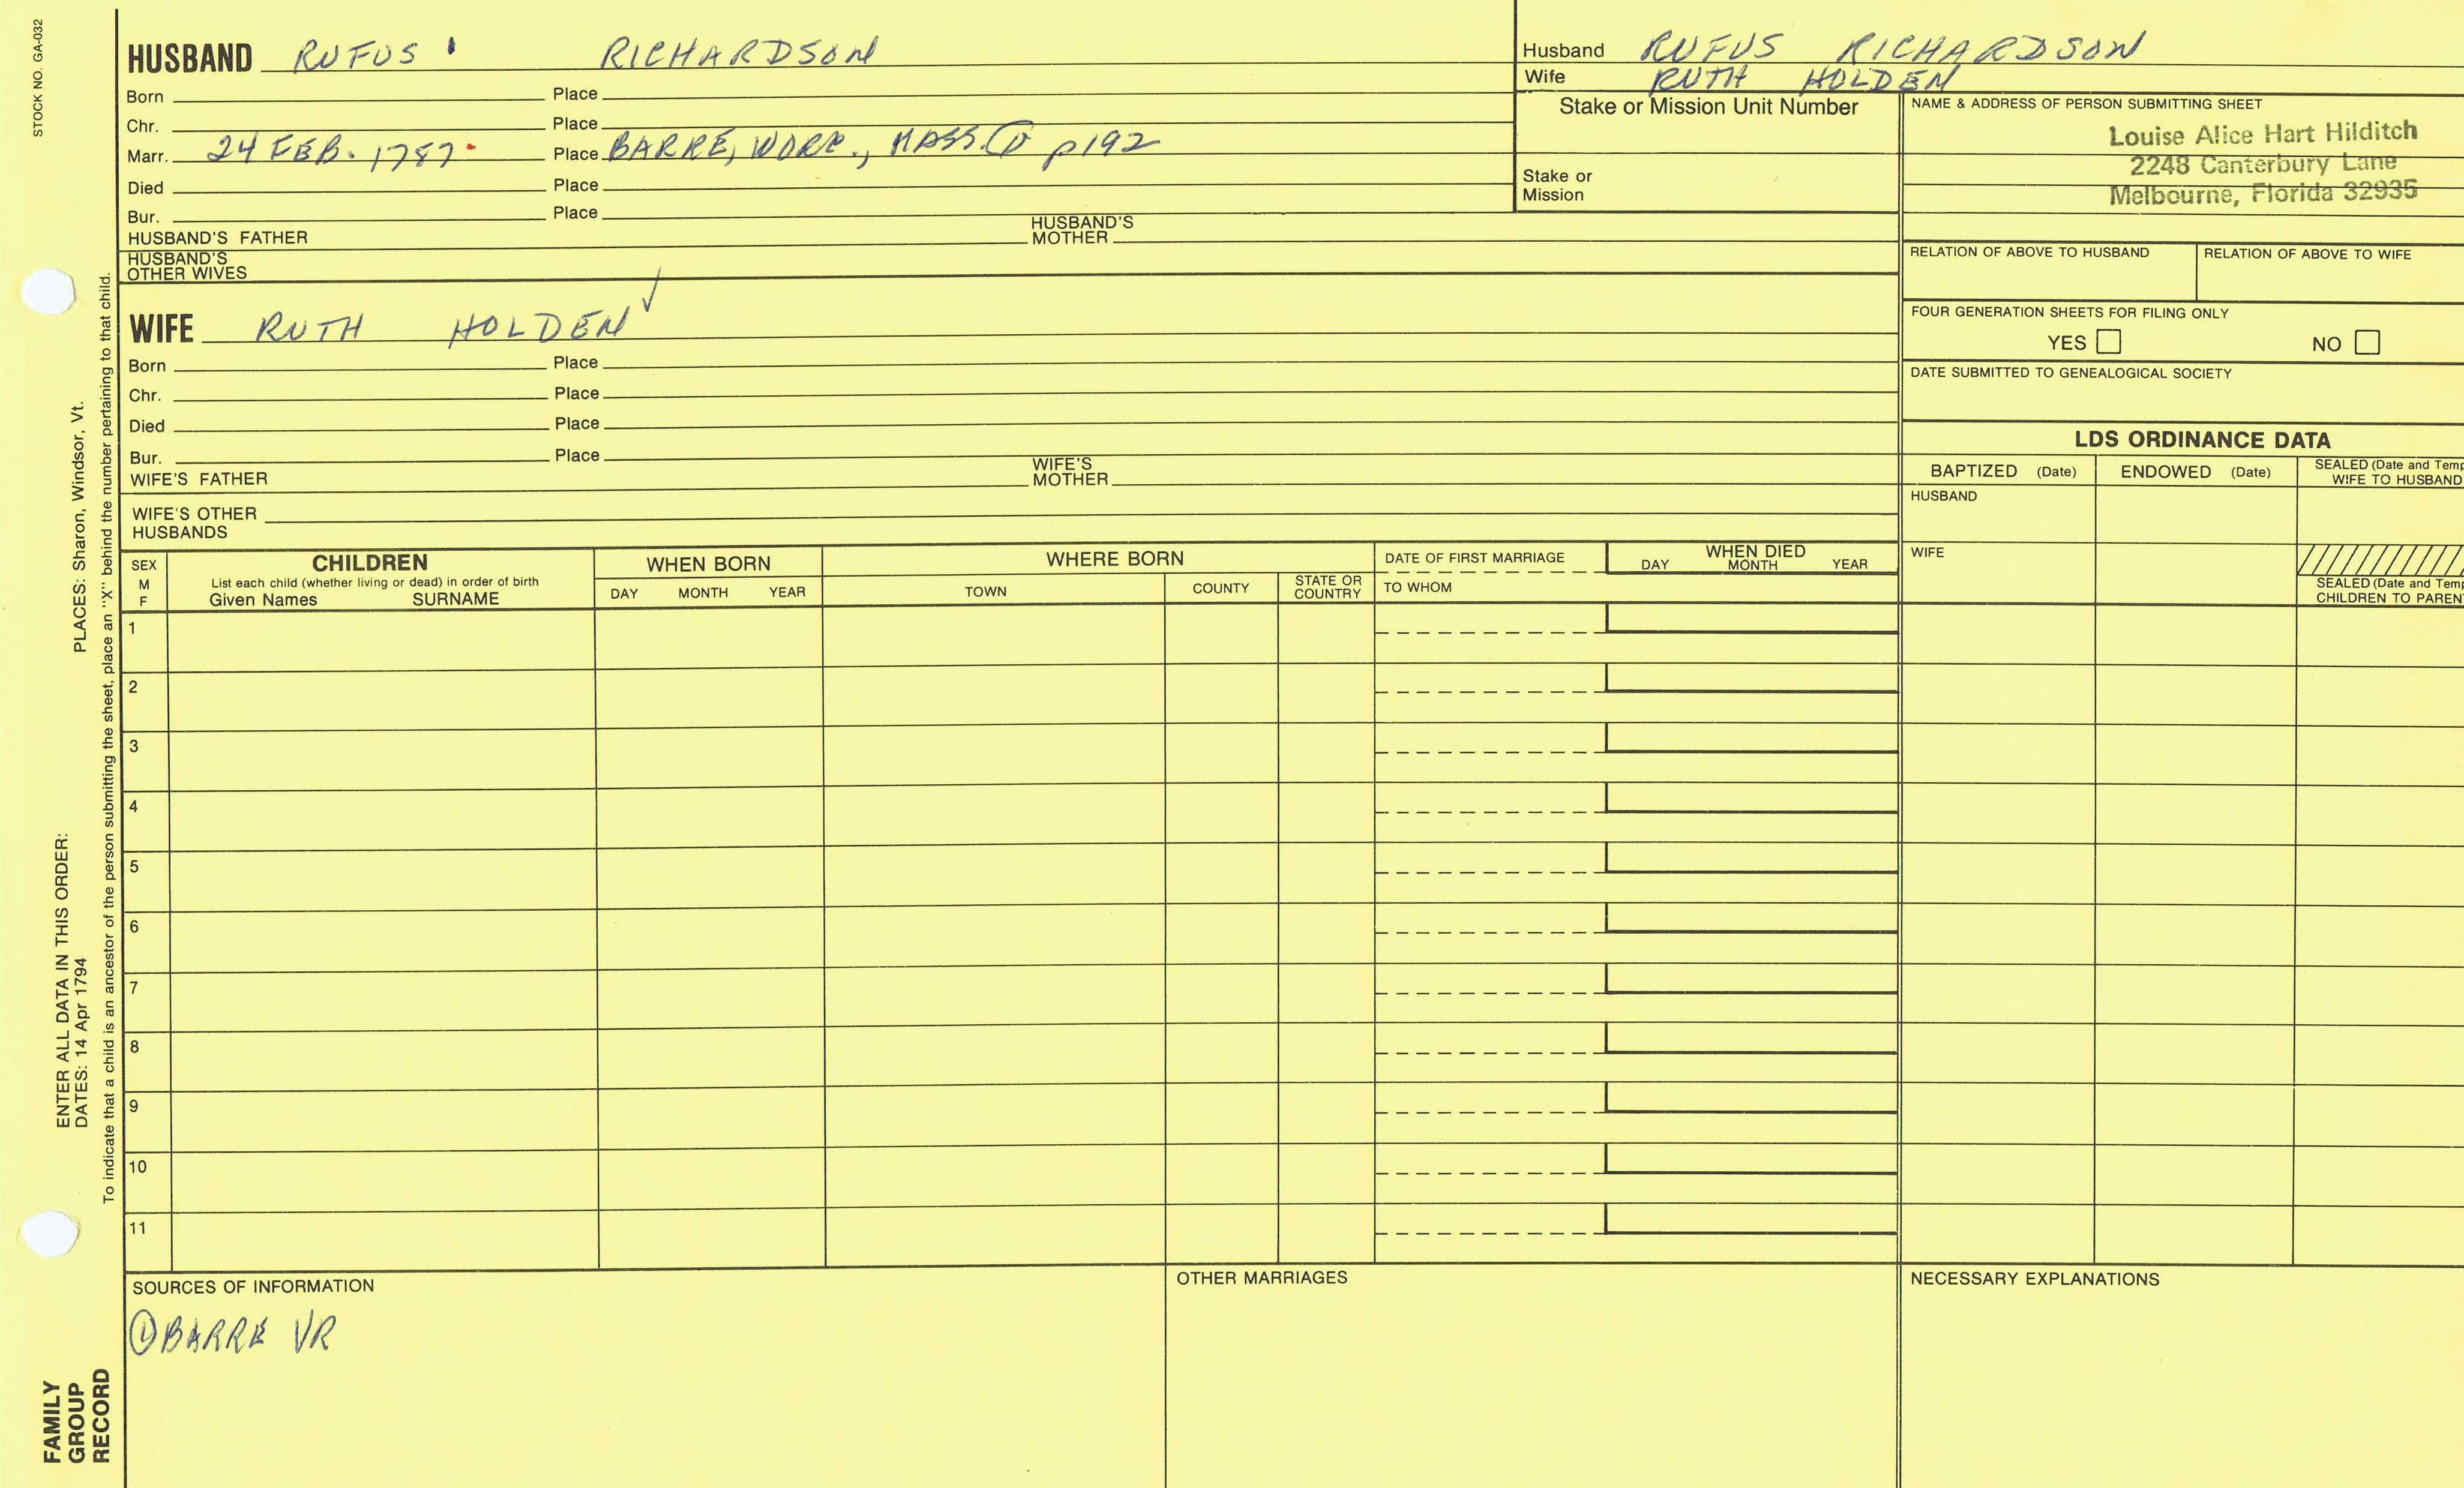 STOCK NO. GA-032
HUSBAND RUFUS RICHARDSON
Born Place
Chr. Place
Marr. 24 FEB. 1787 Place BARRE, WORC., MASS. ① p192
Died Place
Bur. Place
HUSBAND'S FATHER HUSBAND'S MOTHER
HUSBAND'S OTHER WIVES
WIFE RUTH HOLDEN ✓
Born Place
Chr. Place
Died Place
Bur. Place
WIFE'S FATHER WIFE'S MOTHER
WIFE'S OTHER HUSBANDS
Husband RUFUS RICHARDSON
Wife RUTH HOLDEN
Stake or Mission Unit Number
Stake or Mission
NAME & ADDRESS OF PERSON SUBMITTING SHEET
Louise Alice Hart Hilditch
2248 Canterbury Lane
Melbourne, Florida 32935
RELATION OF ABOVE TO HUSBAND RELATION OF ABOVE TO WIFE
FOUR GENERATION SHEETS FOR FILING ONLY
YES NO
DATE SUBMITTED TO GENEALOGICAL SOCIETY
LDS ORDINANCE DATA
BAPTIZED (Date) ENDOWED (Date) SEALED (Date and Temp
WIFE TO HUSBAND
HUSBAND
WIFE
SEALED (Date and Temp
CHILDREN TO PAREN
SEX M F
CHILDREN
List each child (whether living or dead) in order of birth
Given Names SURNAME
WHEN BORN
DAY MONTH YEAR
WHERE BORN
TOWN COUNTY STATE OR COUNTRY
DATE OF FIRST MARRIAGE
TO WHOM
WHEN DIED
DAY MONTH YEAR
1
2
3
4
5
6
7
8
9
10
11
SOURCES OF INFORMATION
① BARRE VR
OTHER MARRIAGES
NECESSARY EXPLANATIONS
ENTER ALL DATA IN THIS ORDER:
DATES: 14 Apr 1794 PLACES: Sharon, Windsor, Vt.
To indicate that a child is an ancestor of the person submitting the sheet, place an "X" behind the number pertaining to that child.
FAMILY
GROUP
RECORD